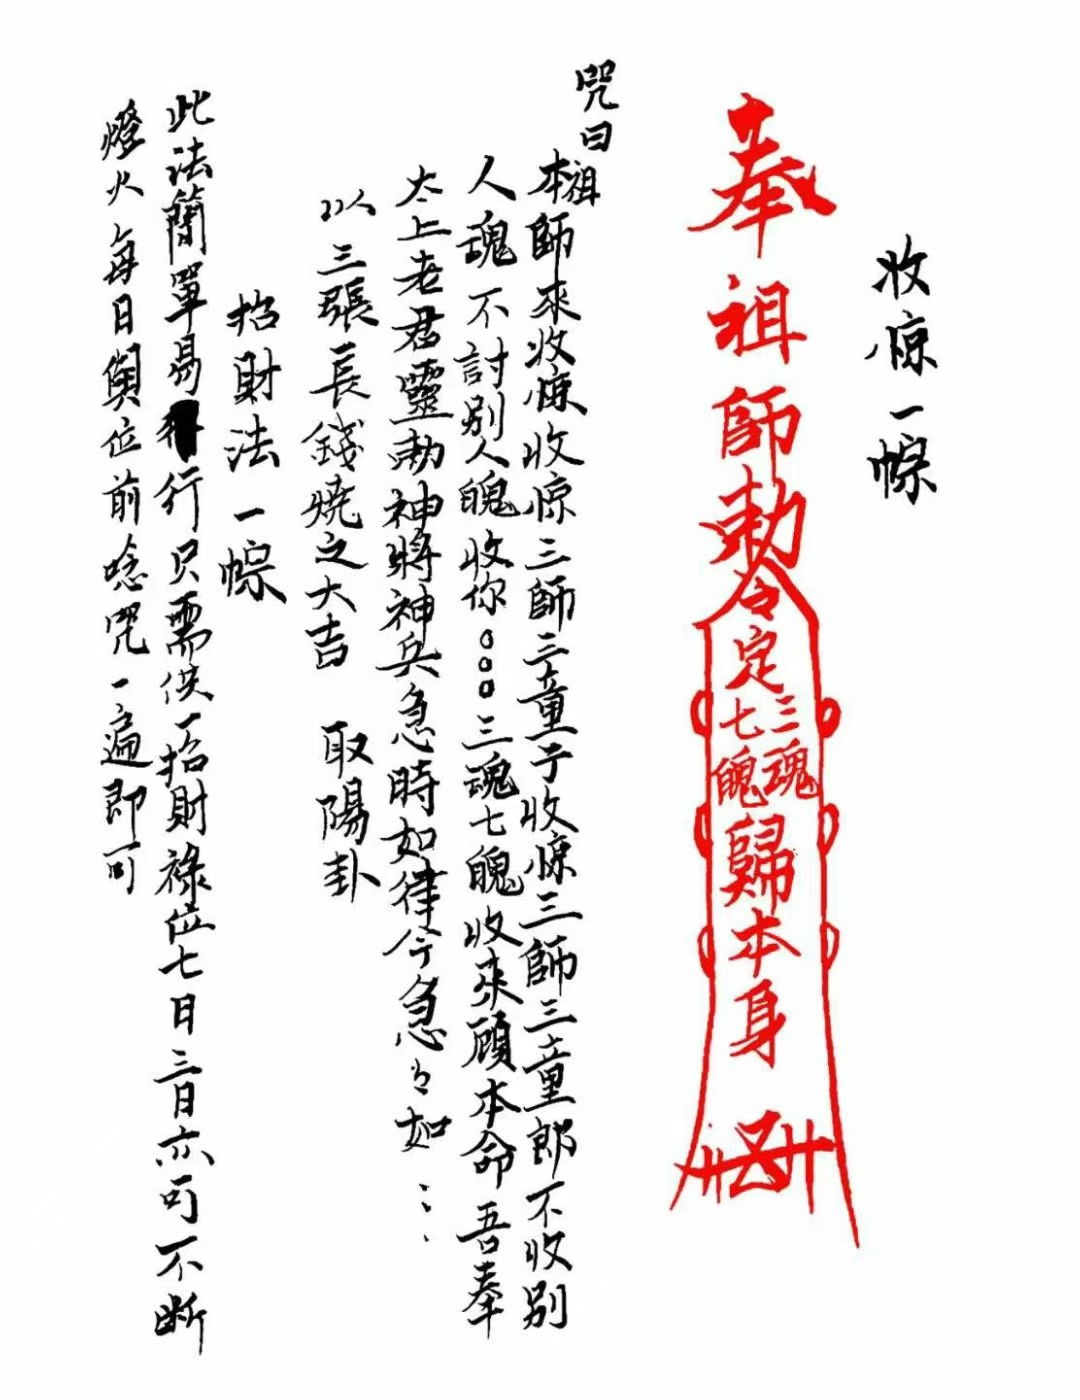 收惊一幖
奉祖師勅令定三魂七魄歸本身
咒曰
本祖師來收惊收惊三師三童子收惊三師三童郎不收別
人魂不討別人魄收你○○○三魂七魄收來顧本命吾奉
太上老君靈勅神將神兵急時如律令急々如⋮
以三張長錢燒之大吉 取陽卦
招財法一幖
此法簡單易行只需供一招財祿位七日三日亦可不斷
燈火每日與位前唸咒一遍即可